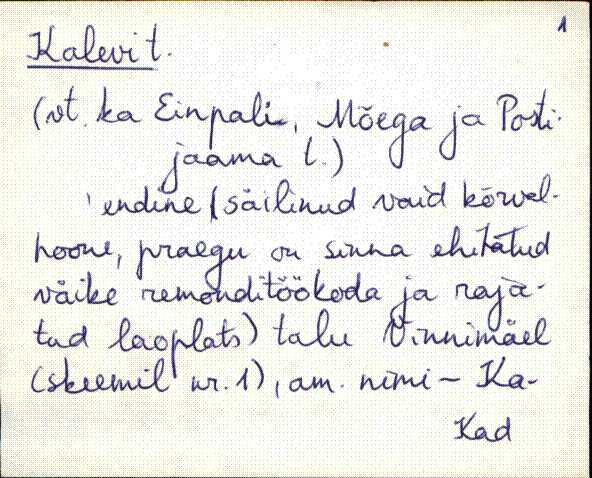 1
Kalevi t.
(vt. ka Einpali, Mõega ja Posti-
jaama t.)
endine (säilinud vaid kõrval-
hoone, praegu on sinna ehitatud
väike remonditöökoda ja raja-
tud laoplats) talu Vinnimäel
(skeemil nr. 1), am. nimi - Ka-
Kad